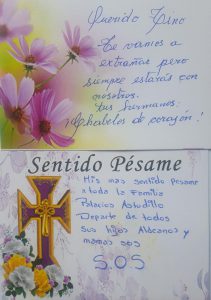 Querido Tino
Te vamos a
extrañar pero
siempre estarás con
nosotros.
tus hermanos:
¡Alfabetos de corazón!
Sentido Pésame
Mis mas sentido pesame
a toda la Familia
Palacios Astudillo
Departe de todos
sus hijos Aldeanos y
mamas sos
S.O.S